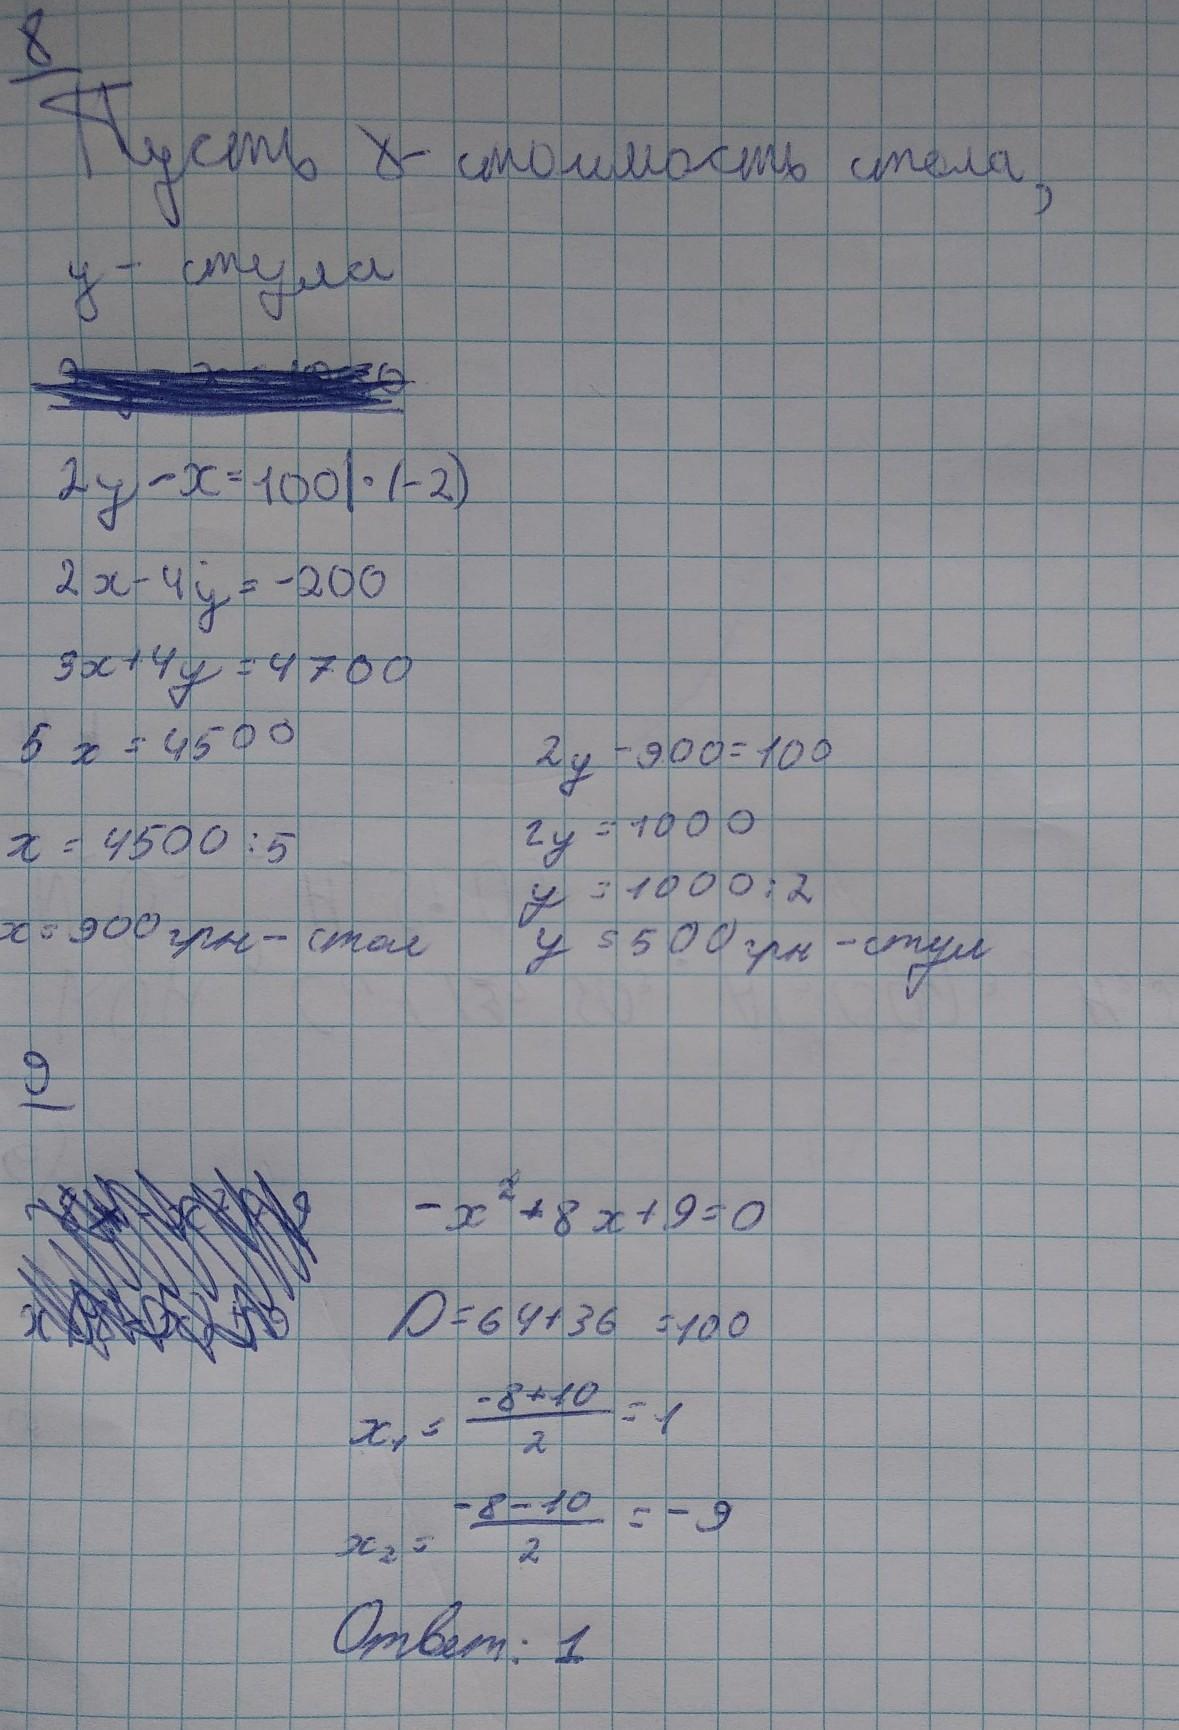 8
Пусть x - стоимость стола,
y - стула
2y - x = 100 | · (-2)
2x - 4y = -200
3x + 4y = 4700
5x = 4500
x = 4500 : 5
x = 900 грн - стол
2y - 900 = 100
2y = 1000
y = 1000 : 2
y = 500 грн - стул
9
-x² + 8x + 9 = 0
D = 64 + 36 = 100
x₁ = (-8 + 10)/2 = 1
x₂ = (-8 - 10)/2 = -9
Ответ: 1